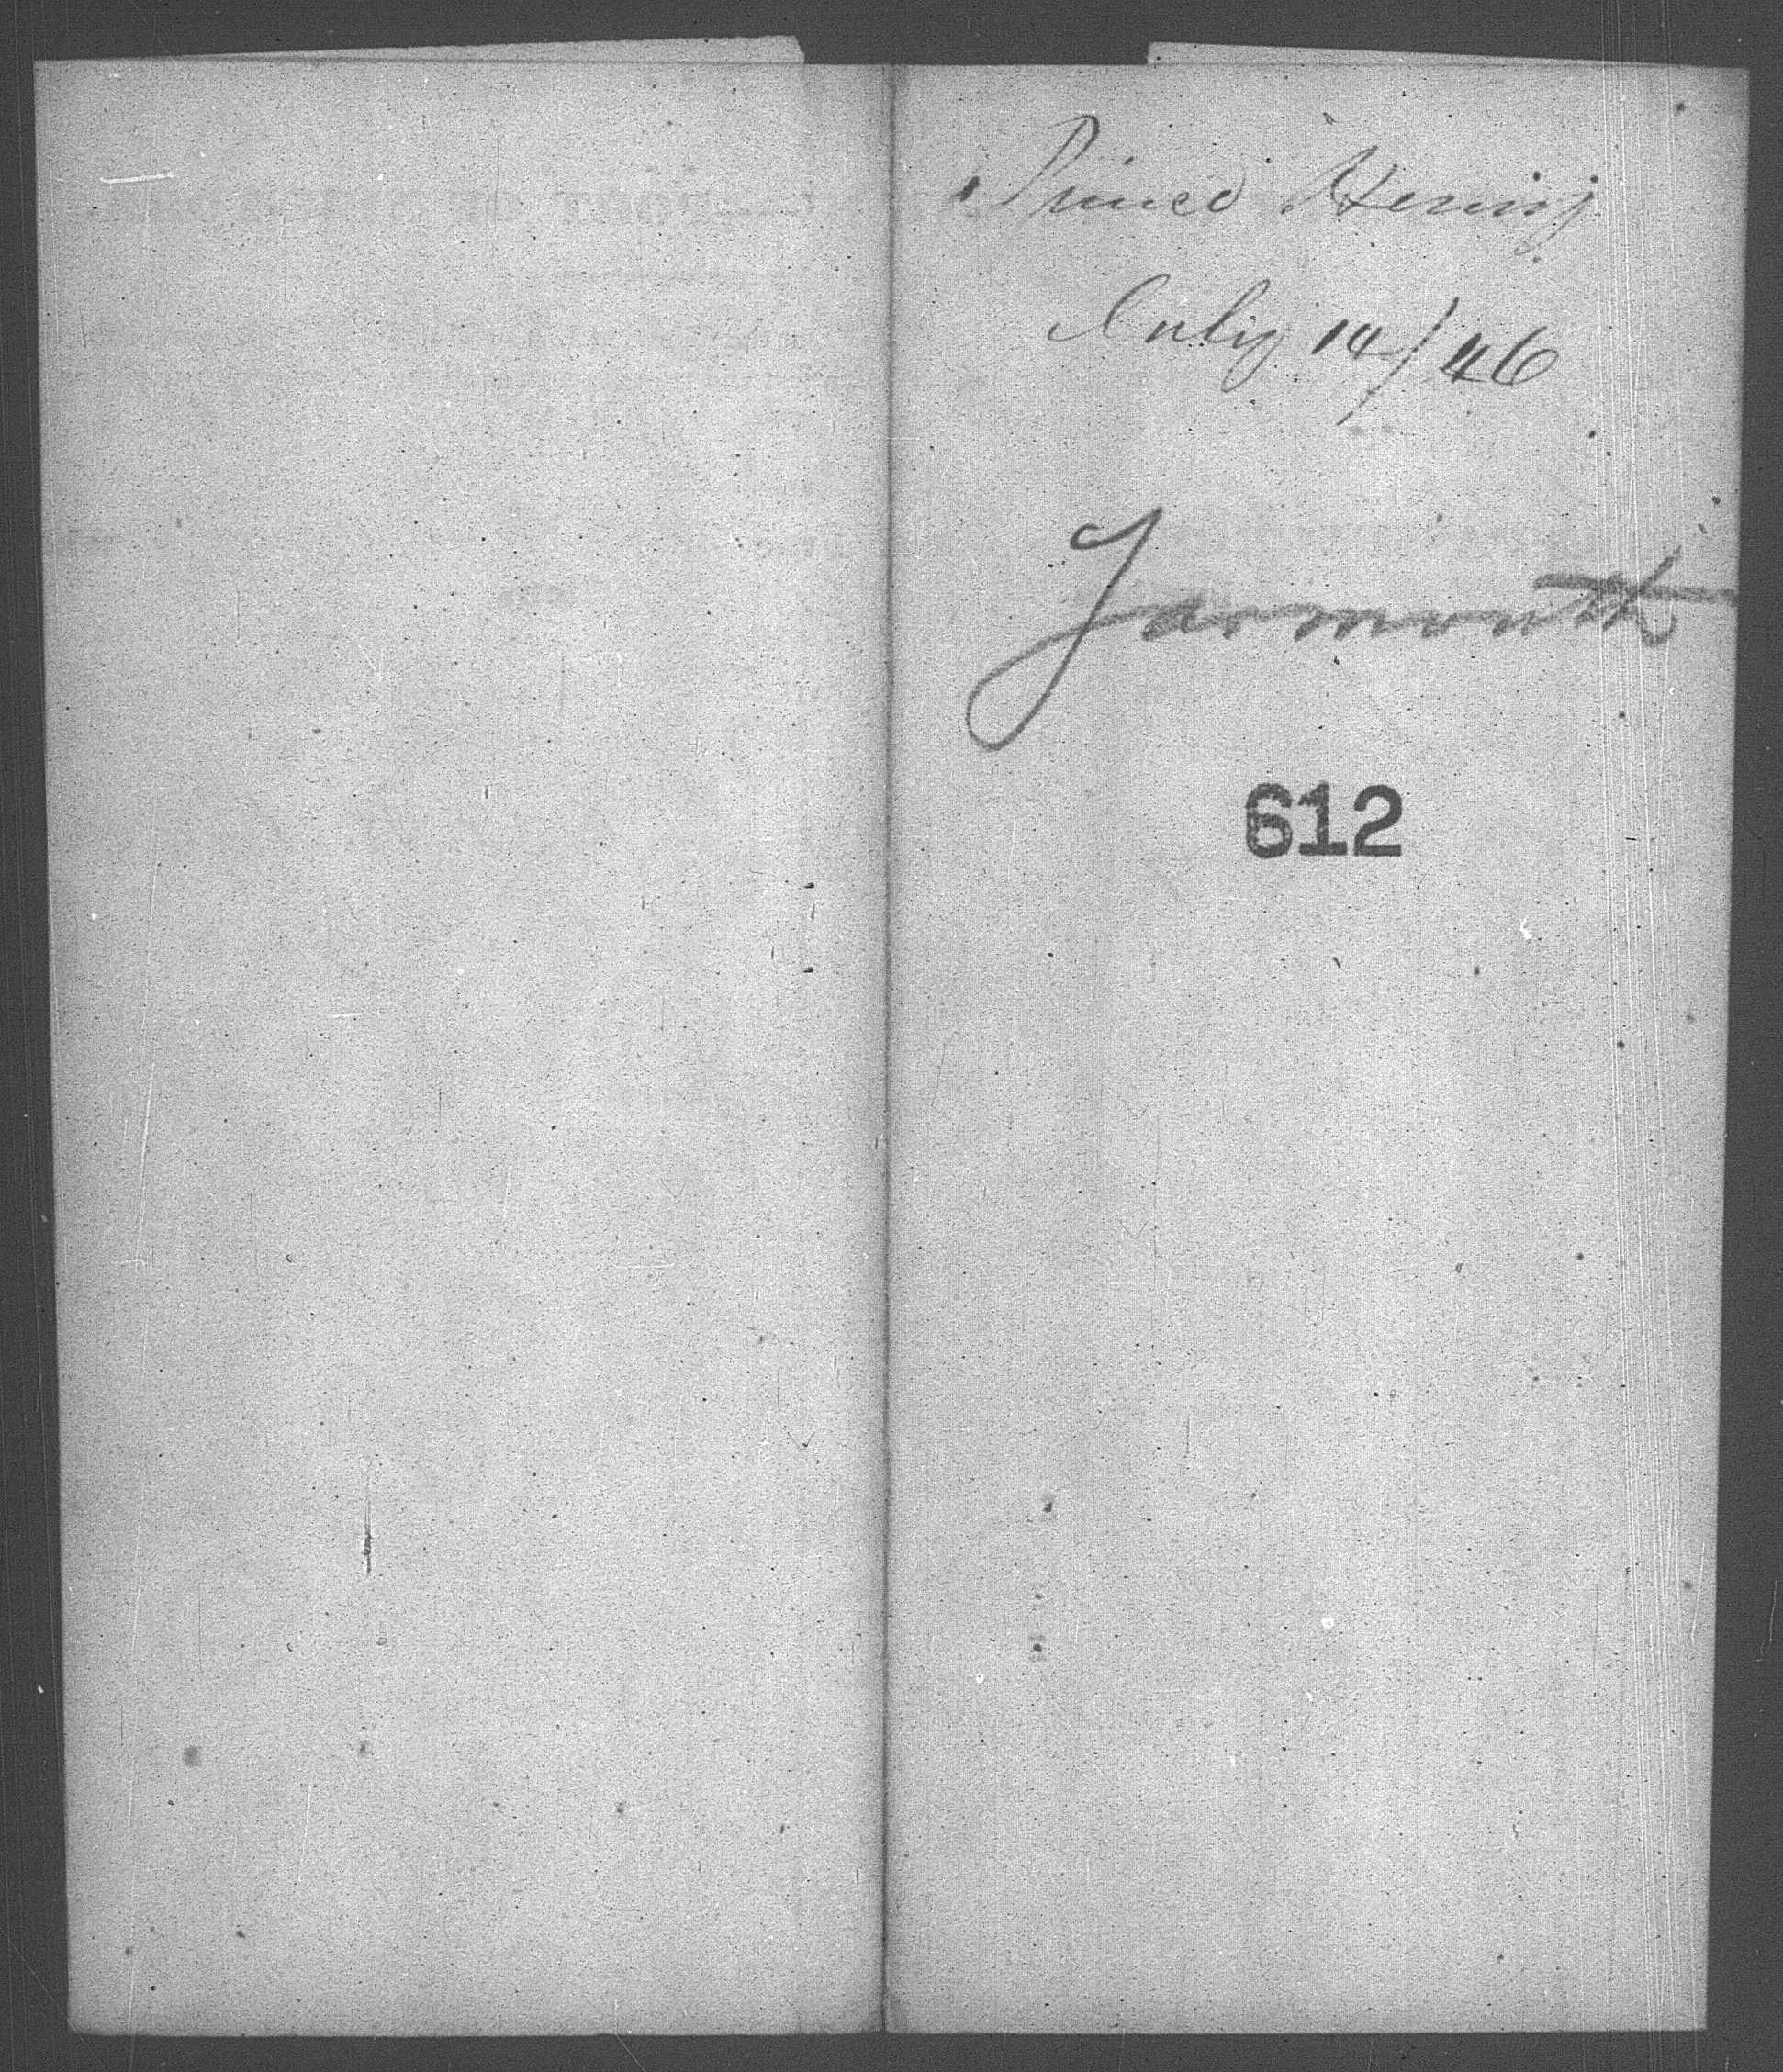 Prince Henry
July 14/46
Yarmouth
612